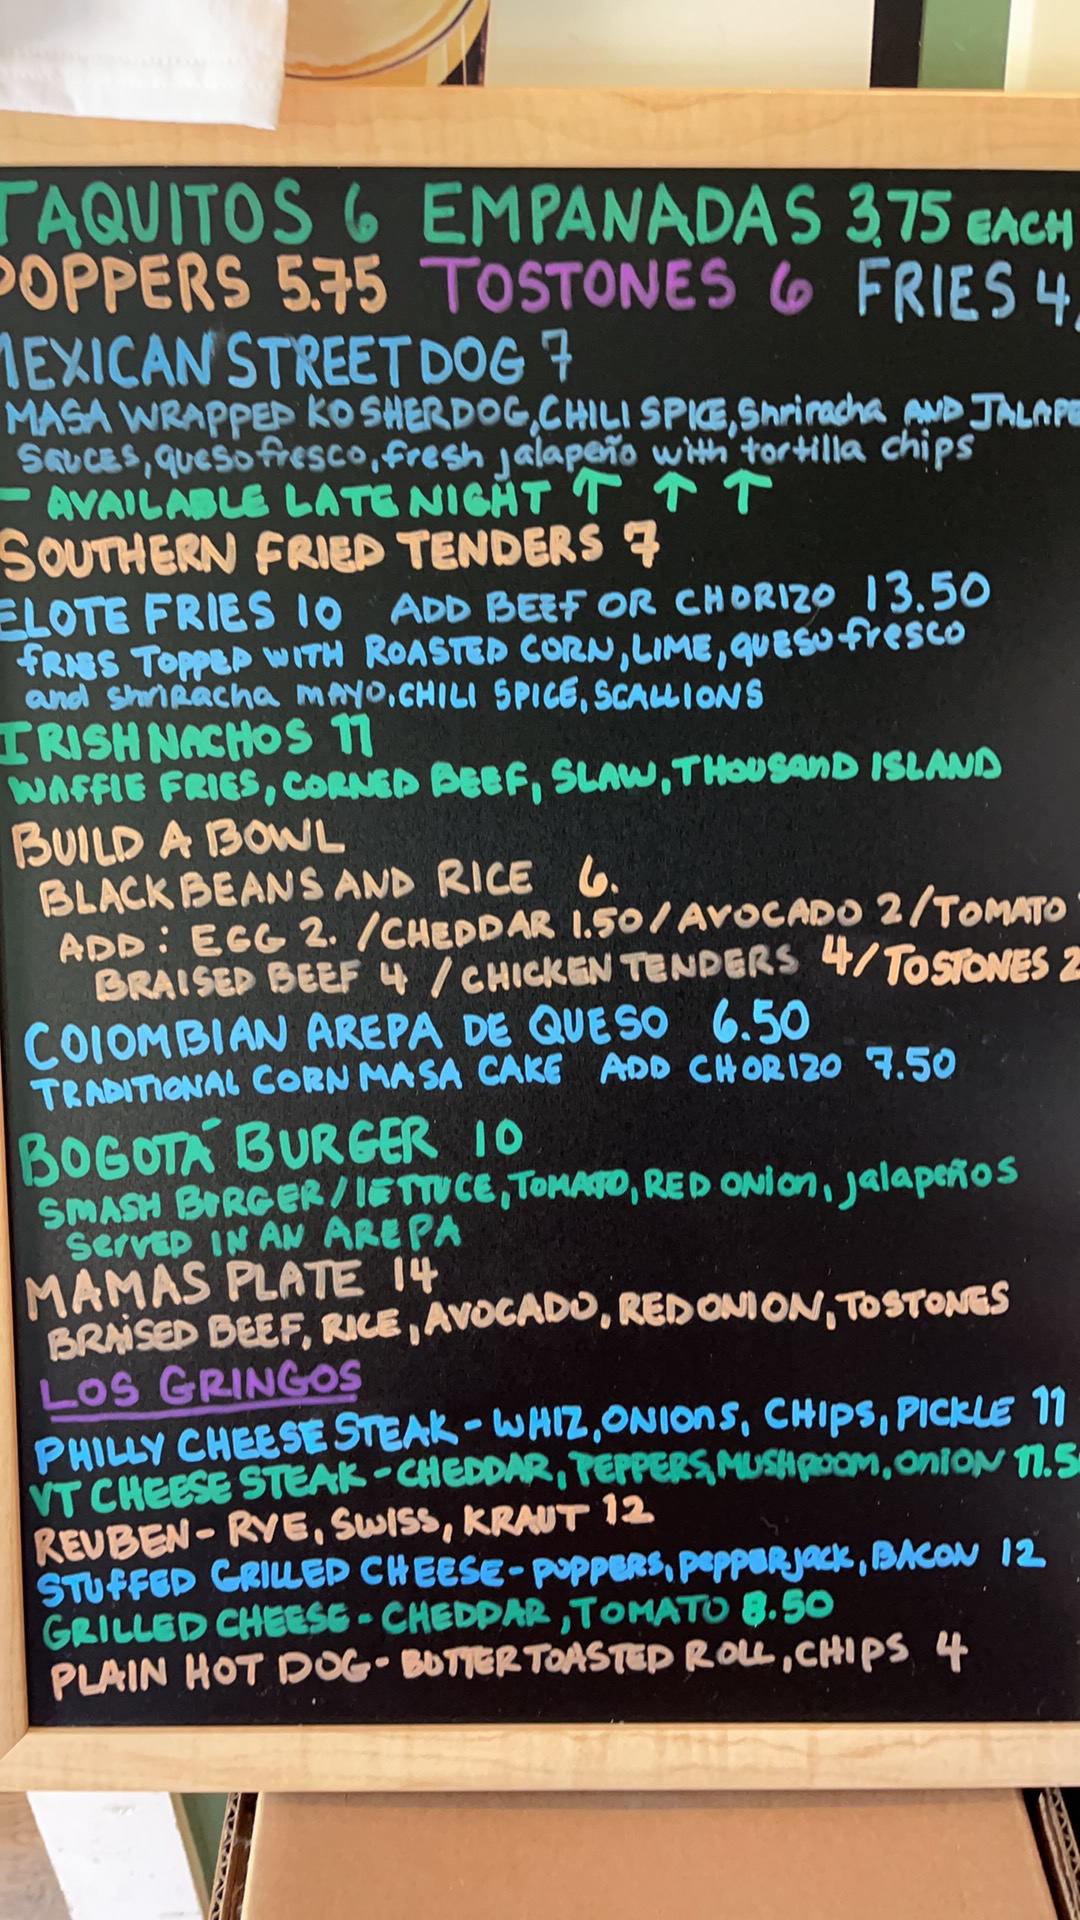 TAQUITOS 6 EMPANADAS 3.75 EACH
POPPERS 5.75 TOSTONES 6 FRIES 4.
MEXICAN STREET DOG 7
MASA WRAPPED KOSHER DOG, CHILI SPICE, Shriracha AND JALAPE
SAUCES, queso fresco, fresh jalapeño with tortilla chips
- AVAILABLE LATE NIGHT ↑ ↑ ↑
SOUTHERN FRIED TENDERS 7
ELOTE FRIES 10 ADD BEEF OR CHORIZO 13.50
FRIES TOPPED WITH ROASTED CORN, LIME, QUESO fresco
and shriracha MAYO, CHILI SPICE, SCALLIONS
IRISH NACHOS 11
WAFFLE FRIES, CORNED BEEF, SLAW, THOUSAND ISLAND
BUILD A BOWL
BLACK BEANS AND RICE 6.
ADD: EGG 2. / CHEDDAR 1.50 / AVOCADO 2 / TOMATO
BRAISED BEEF 4 / CHICKEN TENDERS 4 / TOSTONES 2
COLOMBIAN AREPA DE QUESO 6.50
TRADITIONAL CORN MASA CAKE ADD CHORIZO 7.50
BOGOTÁ BURGER 10
SMASH BURGER / LETTUCE, TOMATO, RED ONION, jalapeños
SERVED IN AN AREPA
MAMAS PLATE 14
BRAISED BEEF, RICE, AVOCADO, RED ONION, TOSTONES
LOS GRINGOS
PHILLY CHEESE STEAK - WHIZ, ONIONS, CHIPS, PICKLE 11
VT CHEESE STEAK - CHEDDAR, PEPPERS, MUSHROOM, ONION 11.5
REUBEN - RYE, SWISS, KRAUT 12
STUFFED GRILLED CHEESE - POPPERS, pepperjack, BACON 12
GRILLED CHEESE - CHEDDAR, TOMATO 8.50
PLAIN HOT DOG - BUTTER TOASTED ROLL, CHIPS 4